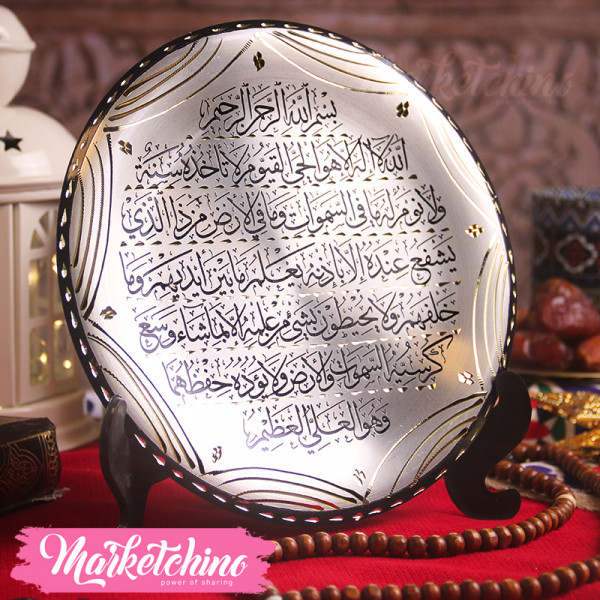 بسم الله الرحمن الرحيم
الله لا اله الا هو الحي القيوم لا تأخذه سنة
ولا نوم له ما في السموات وما في الارض من ذا الذي
يشفع عنده الا باذنه يعلم ما بين ايديهم وما
خلفهم ولا يحيطون بشيء من علمه الا بما شاء وسع
كرسيه السموات والارض ولا يؤده حفظهما
وهو العلي العظيم
Marketchino
Marketchino
power of sharing